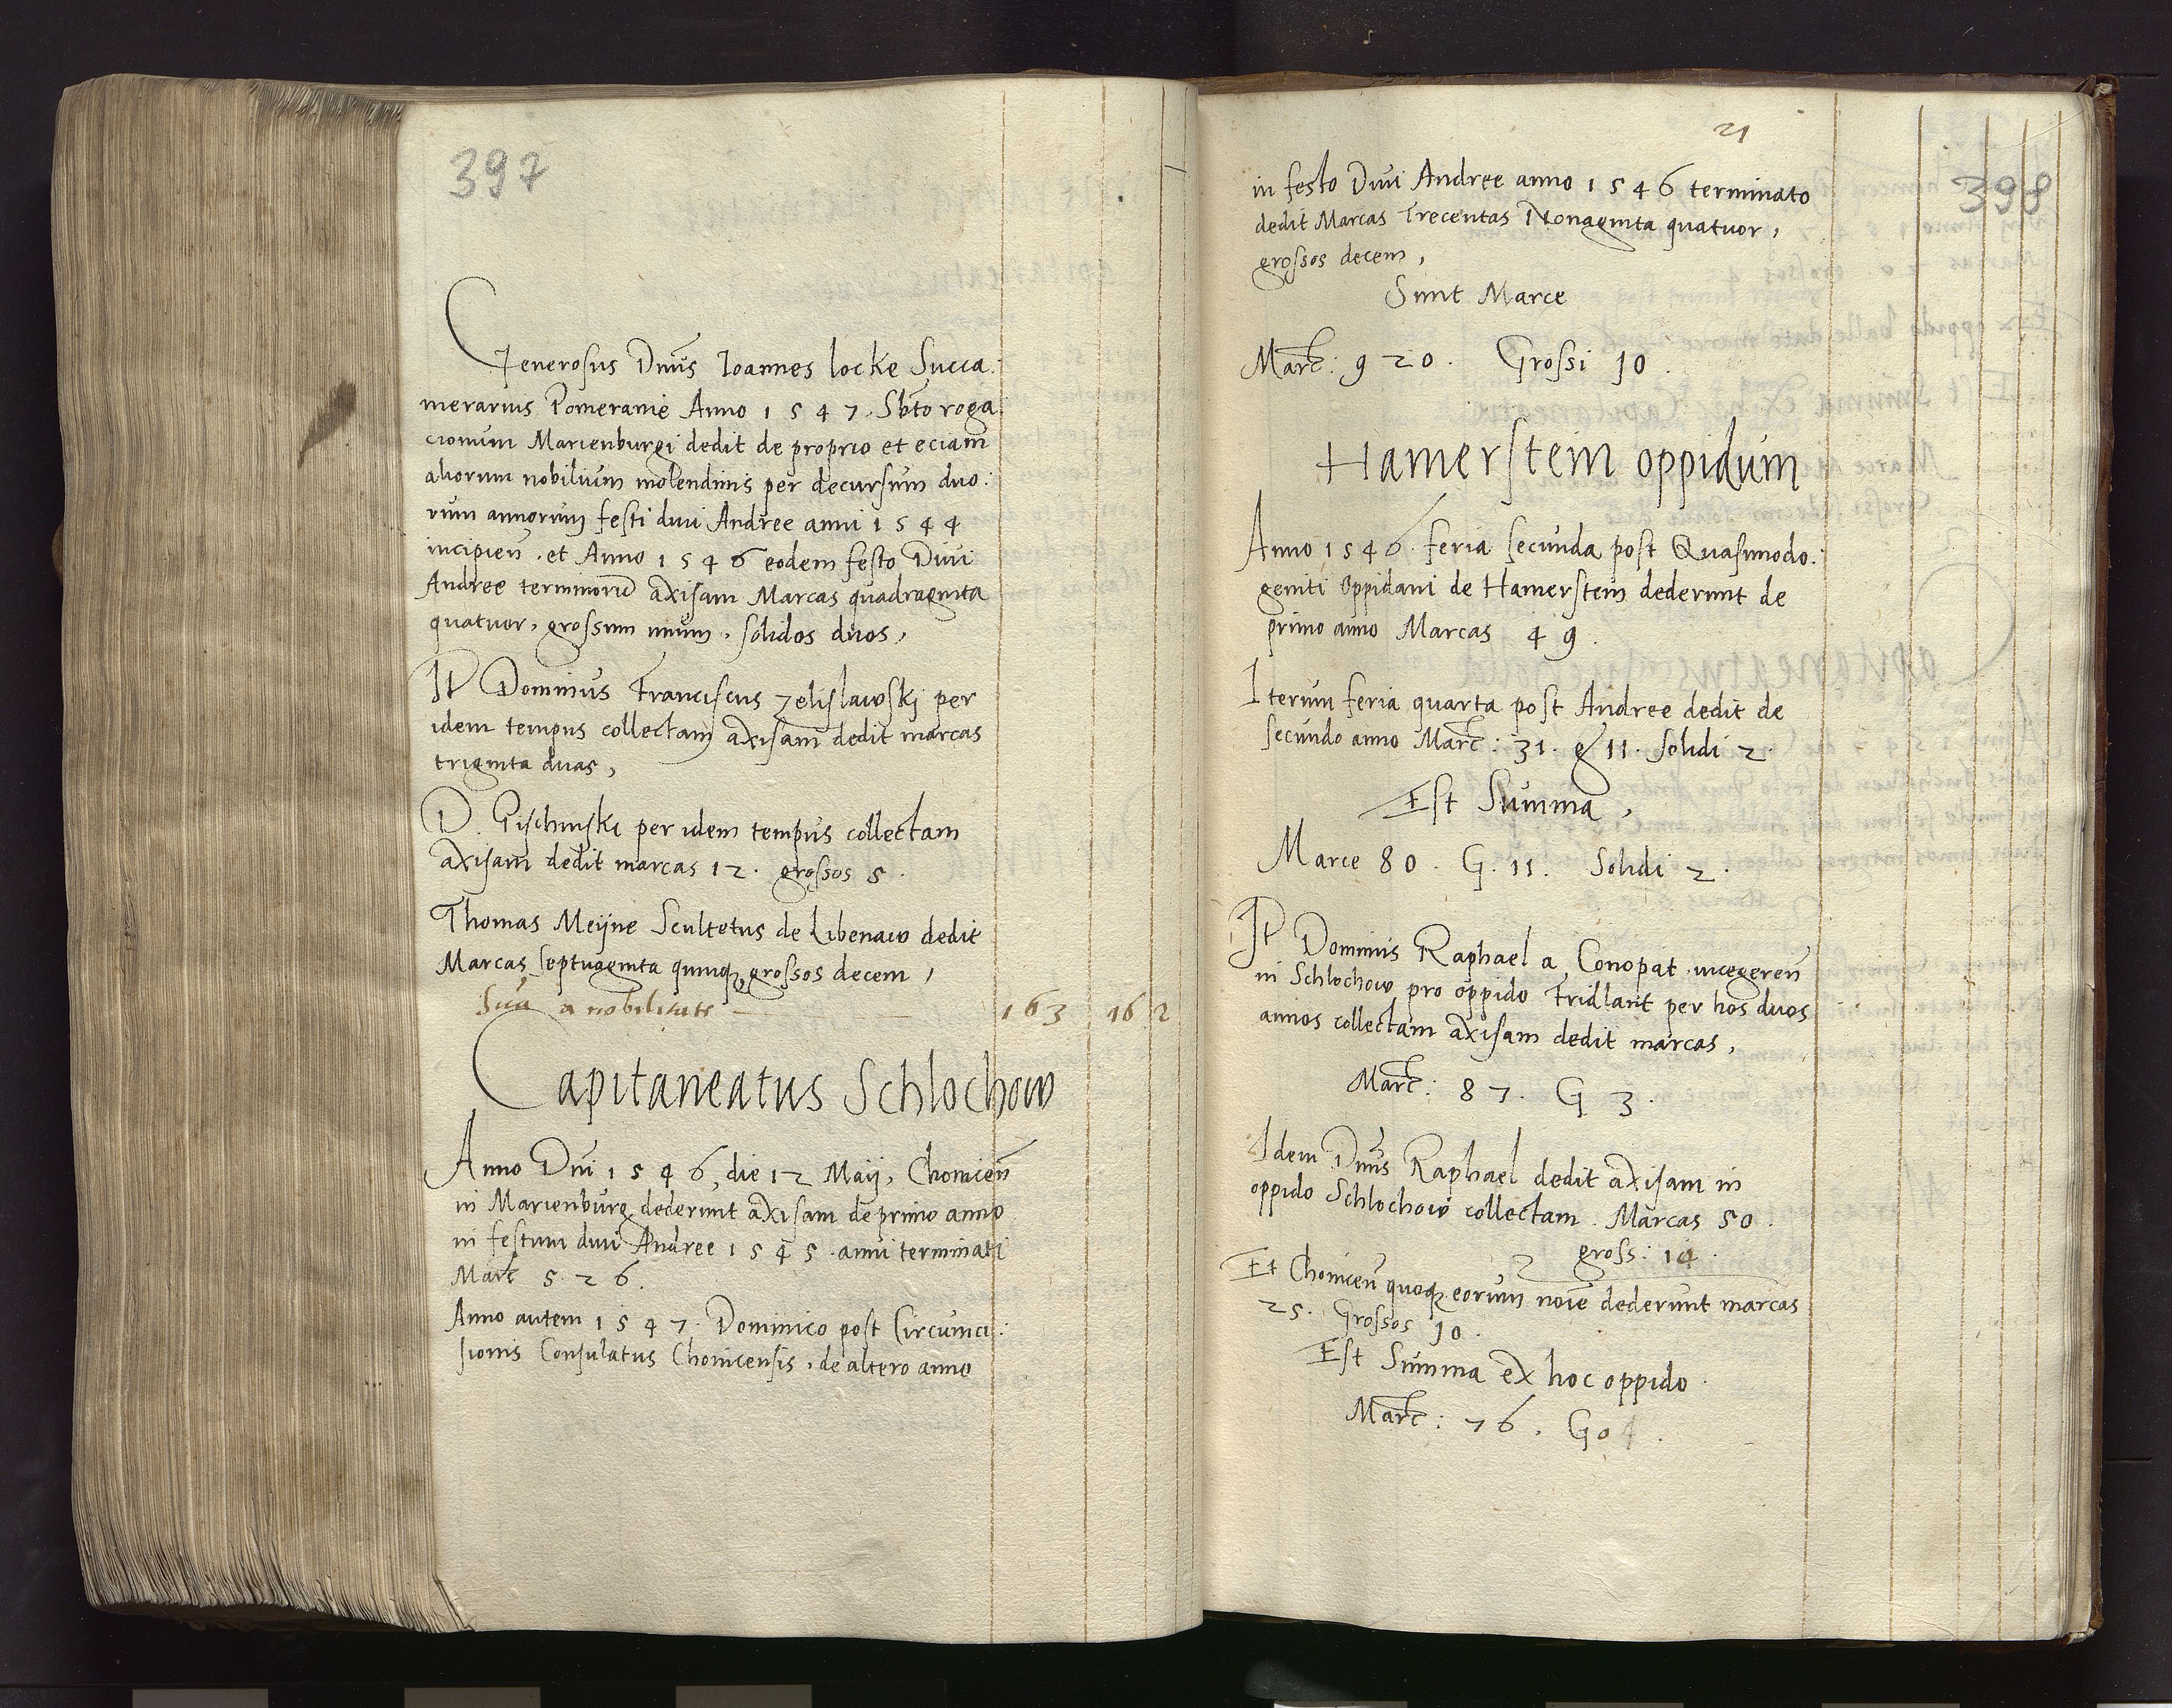 397
Generosus Dnūs Ioannes locke Succa:
merarius Pomeranie Anno 1547. Sbto roga:
cionum Marienburgi dedit de proprio et eciam
aliorum nobilium molendinis per decursum duo:
rum annorum festi divi Andree anni 1544
incipien̄. et Anno 1546 eodem festo Divi
Andree axisam Marcas quadraginta
quatuor, grossum unum, solidos duos,
It Dominus Franciscus Zelislawskj per
idem tempus collectam axisam dedit marcas
triginta duas,
D. per idem tempus collectam
axisam dedit marcas 12. grossos 5.
Thomas Meijne Scultetus de Libenaw dedit
Marcas septuaginta quinq₃ grossos decem,
Suā a nobilitate 163 16 2
Capitaneatus Schlochow
Anno Dni 1546, die 12 Maij, Chonicen̄
in Marienburg dederunt axisam de primo anno
in festum divi Andree 1545. anni terminati
Marc 526.
Anno autem 1547. Dominico post Circumci:
sionis Consulatus Chonicensis, de altero anno
21
398
in festo Divi Andree anno 1546 terminato
dedit Marcas Trecentas Nonaginta quatuor,
grossos decem,
Sunt Marce
Marc: 920. Grossi 10.
Hamerstein oppidum
Anno 1546. feria secunda post Quasimodo:
geniti Oppidani de Hamerstein dederunt de
primo anno Marcas 49.
Iterum feria quarta post Andree dedit de
secundo anno Marc: 31. g 11. Solidi 2.
Est Summa,
Marce 80. G. 11. Solidi 2.
It Dominus Raphael a Conopat vicegeren̄
in Schlochow pro oppido Fridlant per hos duos
annos collectam axisam dedit marcas,
Marc: 87. G 3.
Idem Dnūs Raphael dedit axisam in
oppido Schlochow collectam. Marcas 50.
gross: 14.
Et Chonicen̄ quoq₃ eorum noīe dederunt marcas
25. Grossos 10.
Est Summa ex hoc oppido.
Marc: 76. G 0 4.